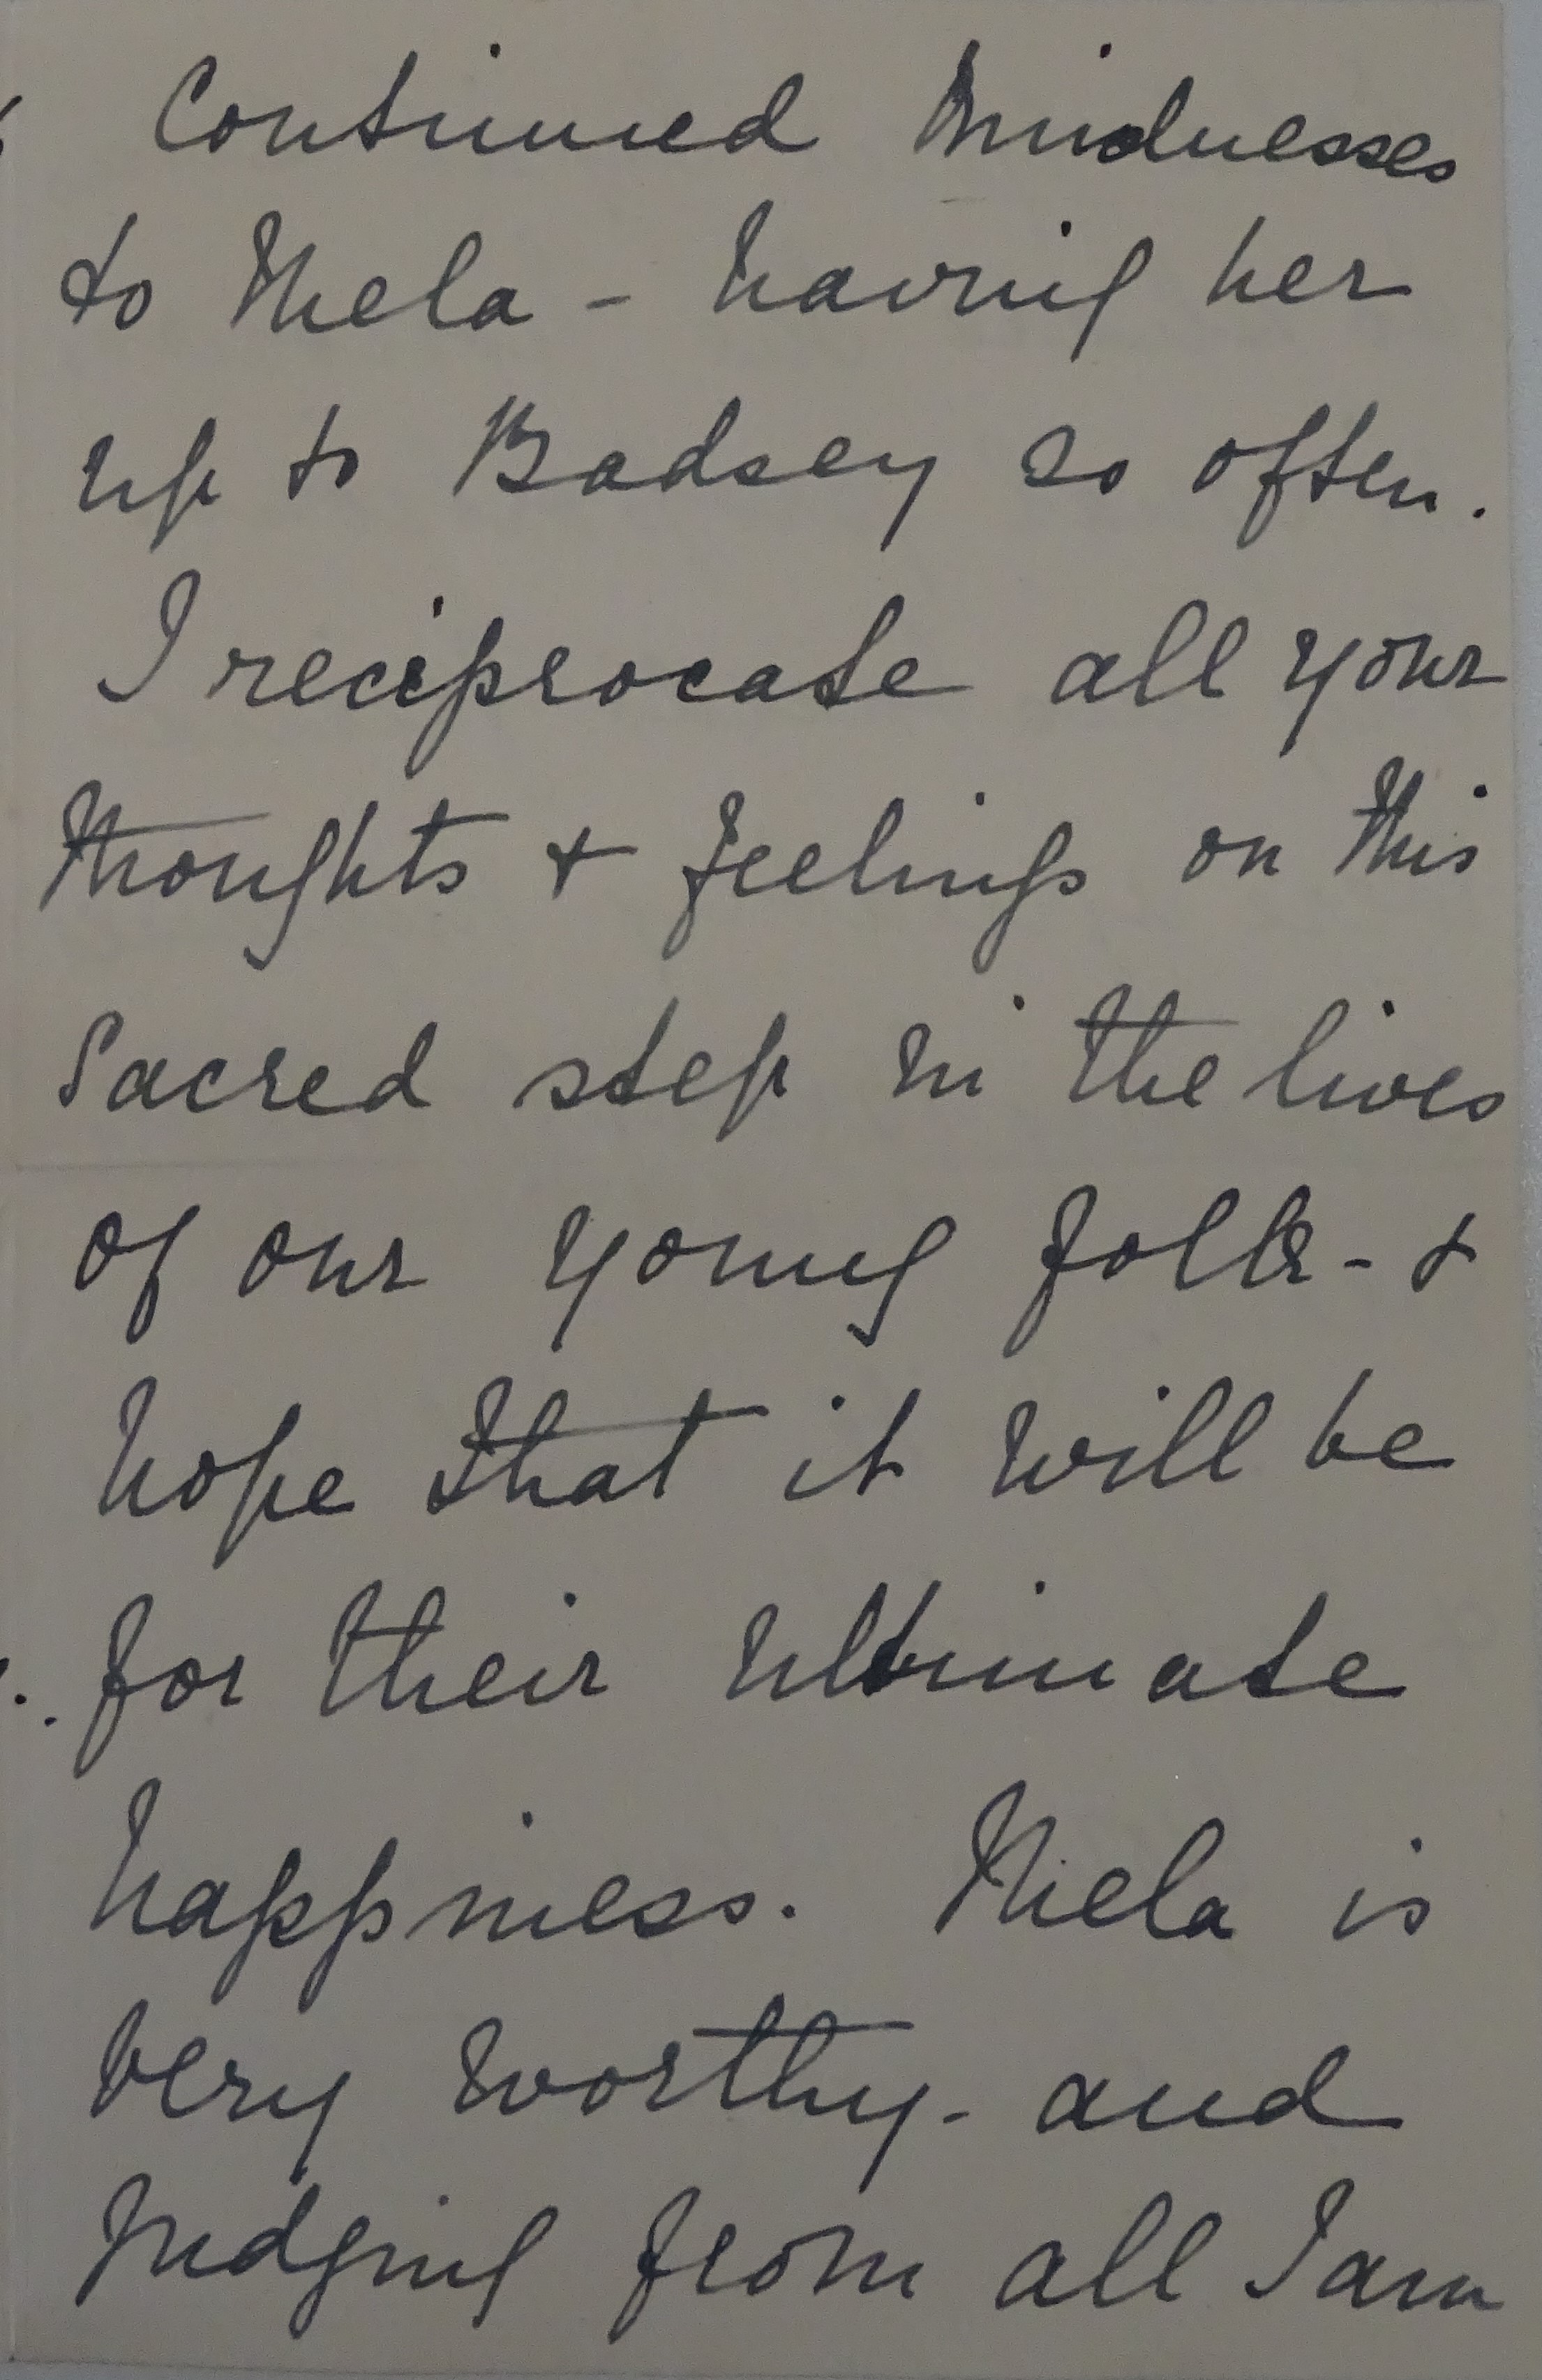 Continued kindnesses
to Mela - having her
up to Badsey so often.
I reciprocate all your
thoughts & feelings on this
Sacred step in the lives
of our young folk - &
hope that it will be
for their ultimate
happiness. Mela is
very worthy - and
judging from all I am